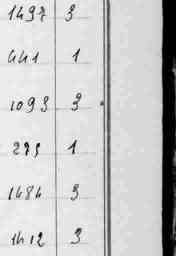 1497 3
441 1
1093 3
275 1
1484 3
1412 3